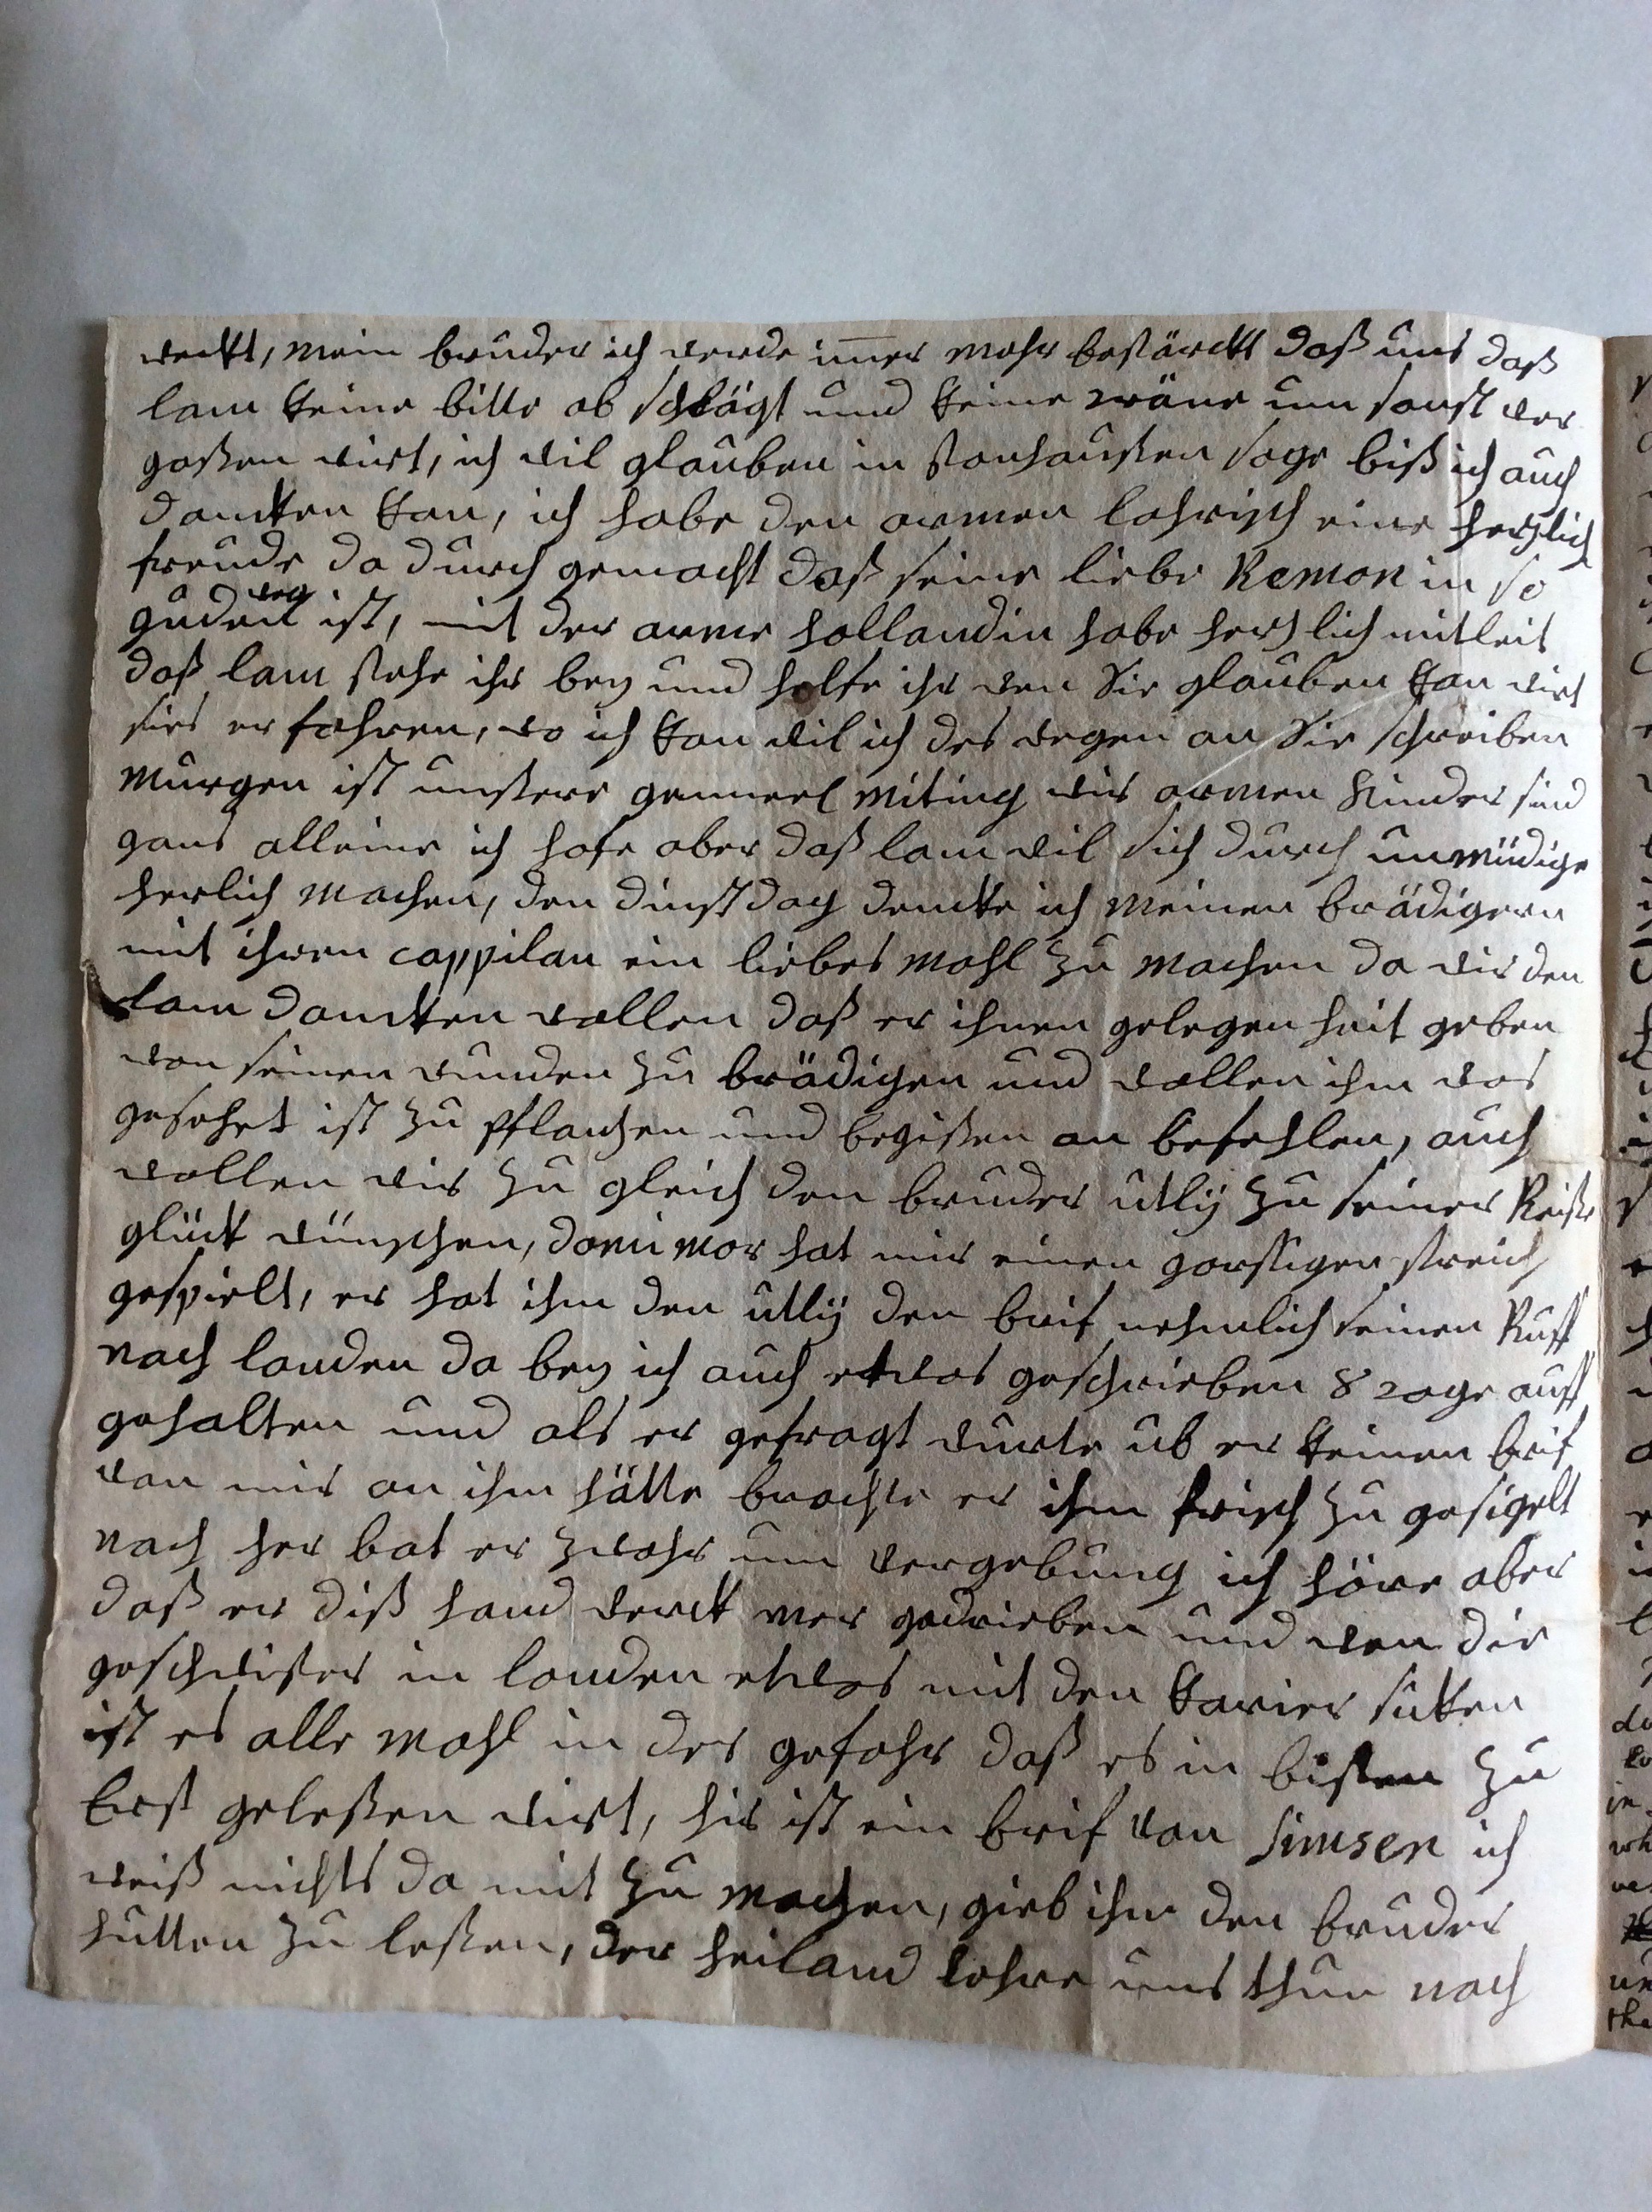 weckt, mein bruder ich werde im̅er mehr bestärckt daß uns daß
lam keine bitte ab schlägt und keine träne um sonst ver
goßen wirt, ich wil glauben in stonhaußen sage biß ich auch
dancken kan, ich habe den armen lohrisch eine hertzlich
freude da durch gemacht daß seine liebe Remon in so
guden weg ist, mit der arme hollandin habe hertzlich mitleit
daß lam stehe ihr bey und helfe ihr wen Sie glauben kan wirt
sies er fahren, wo ich kan wil ich des wegen an Sie schreiben
murgen ist unßere genneral miting wir armen Kinder sind
gans alleine ich hofe aber daß lam wil sich durch unmüdige
herlich machen, den dinstdag dencke ich meinen brädigern
mit ihren cappilan ein liebes mahl zu machen da wir den
lam dancken wollen daß er ihnen gelegen heit geben
von seinen wunden zu brädigen und wollen ihm was
gesehet ist zu pflantzen und begißen an befehlen, auch
wollen wir zu gleich den bruder utlÿ zu seiner Reiße
glück wünschen, hat mir einen garstigen streich
gespielt, er hat ihm den utlÿ den brif nehmlich seinen Ruff
nach londen da bey ich auch etwas geschrieben 8 tage auff
gehalten und als er gefragt wurte ub er keinen brif
von mir an ihm hätte brachte er ihm frisch zu gesigelt
nach her bat er zwahr um vergebung ich höre aber
daß er diß hand werck mer gedrieben und wen die
geschwister in londen etwas mit den karier sicken
ist es alle mahl in der gefahr daß es in zu
Erst geleßen wirt, hir ist ein brif von Simsen ich
weiß nichts da mit zu machen, gieb ihm den bruder
hutten zu leßen, der heiland lehre uns thun nach